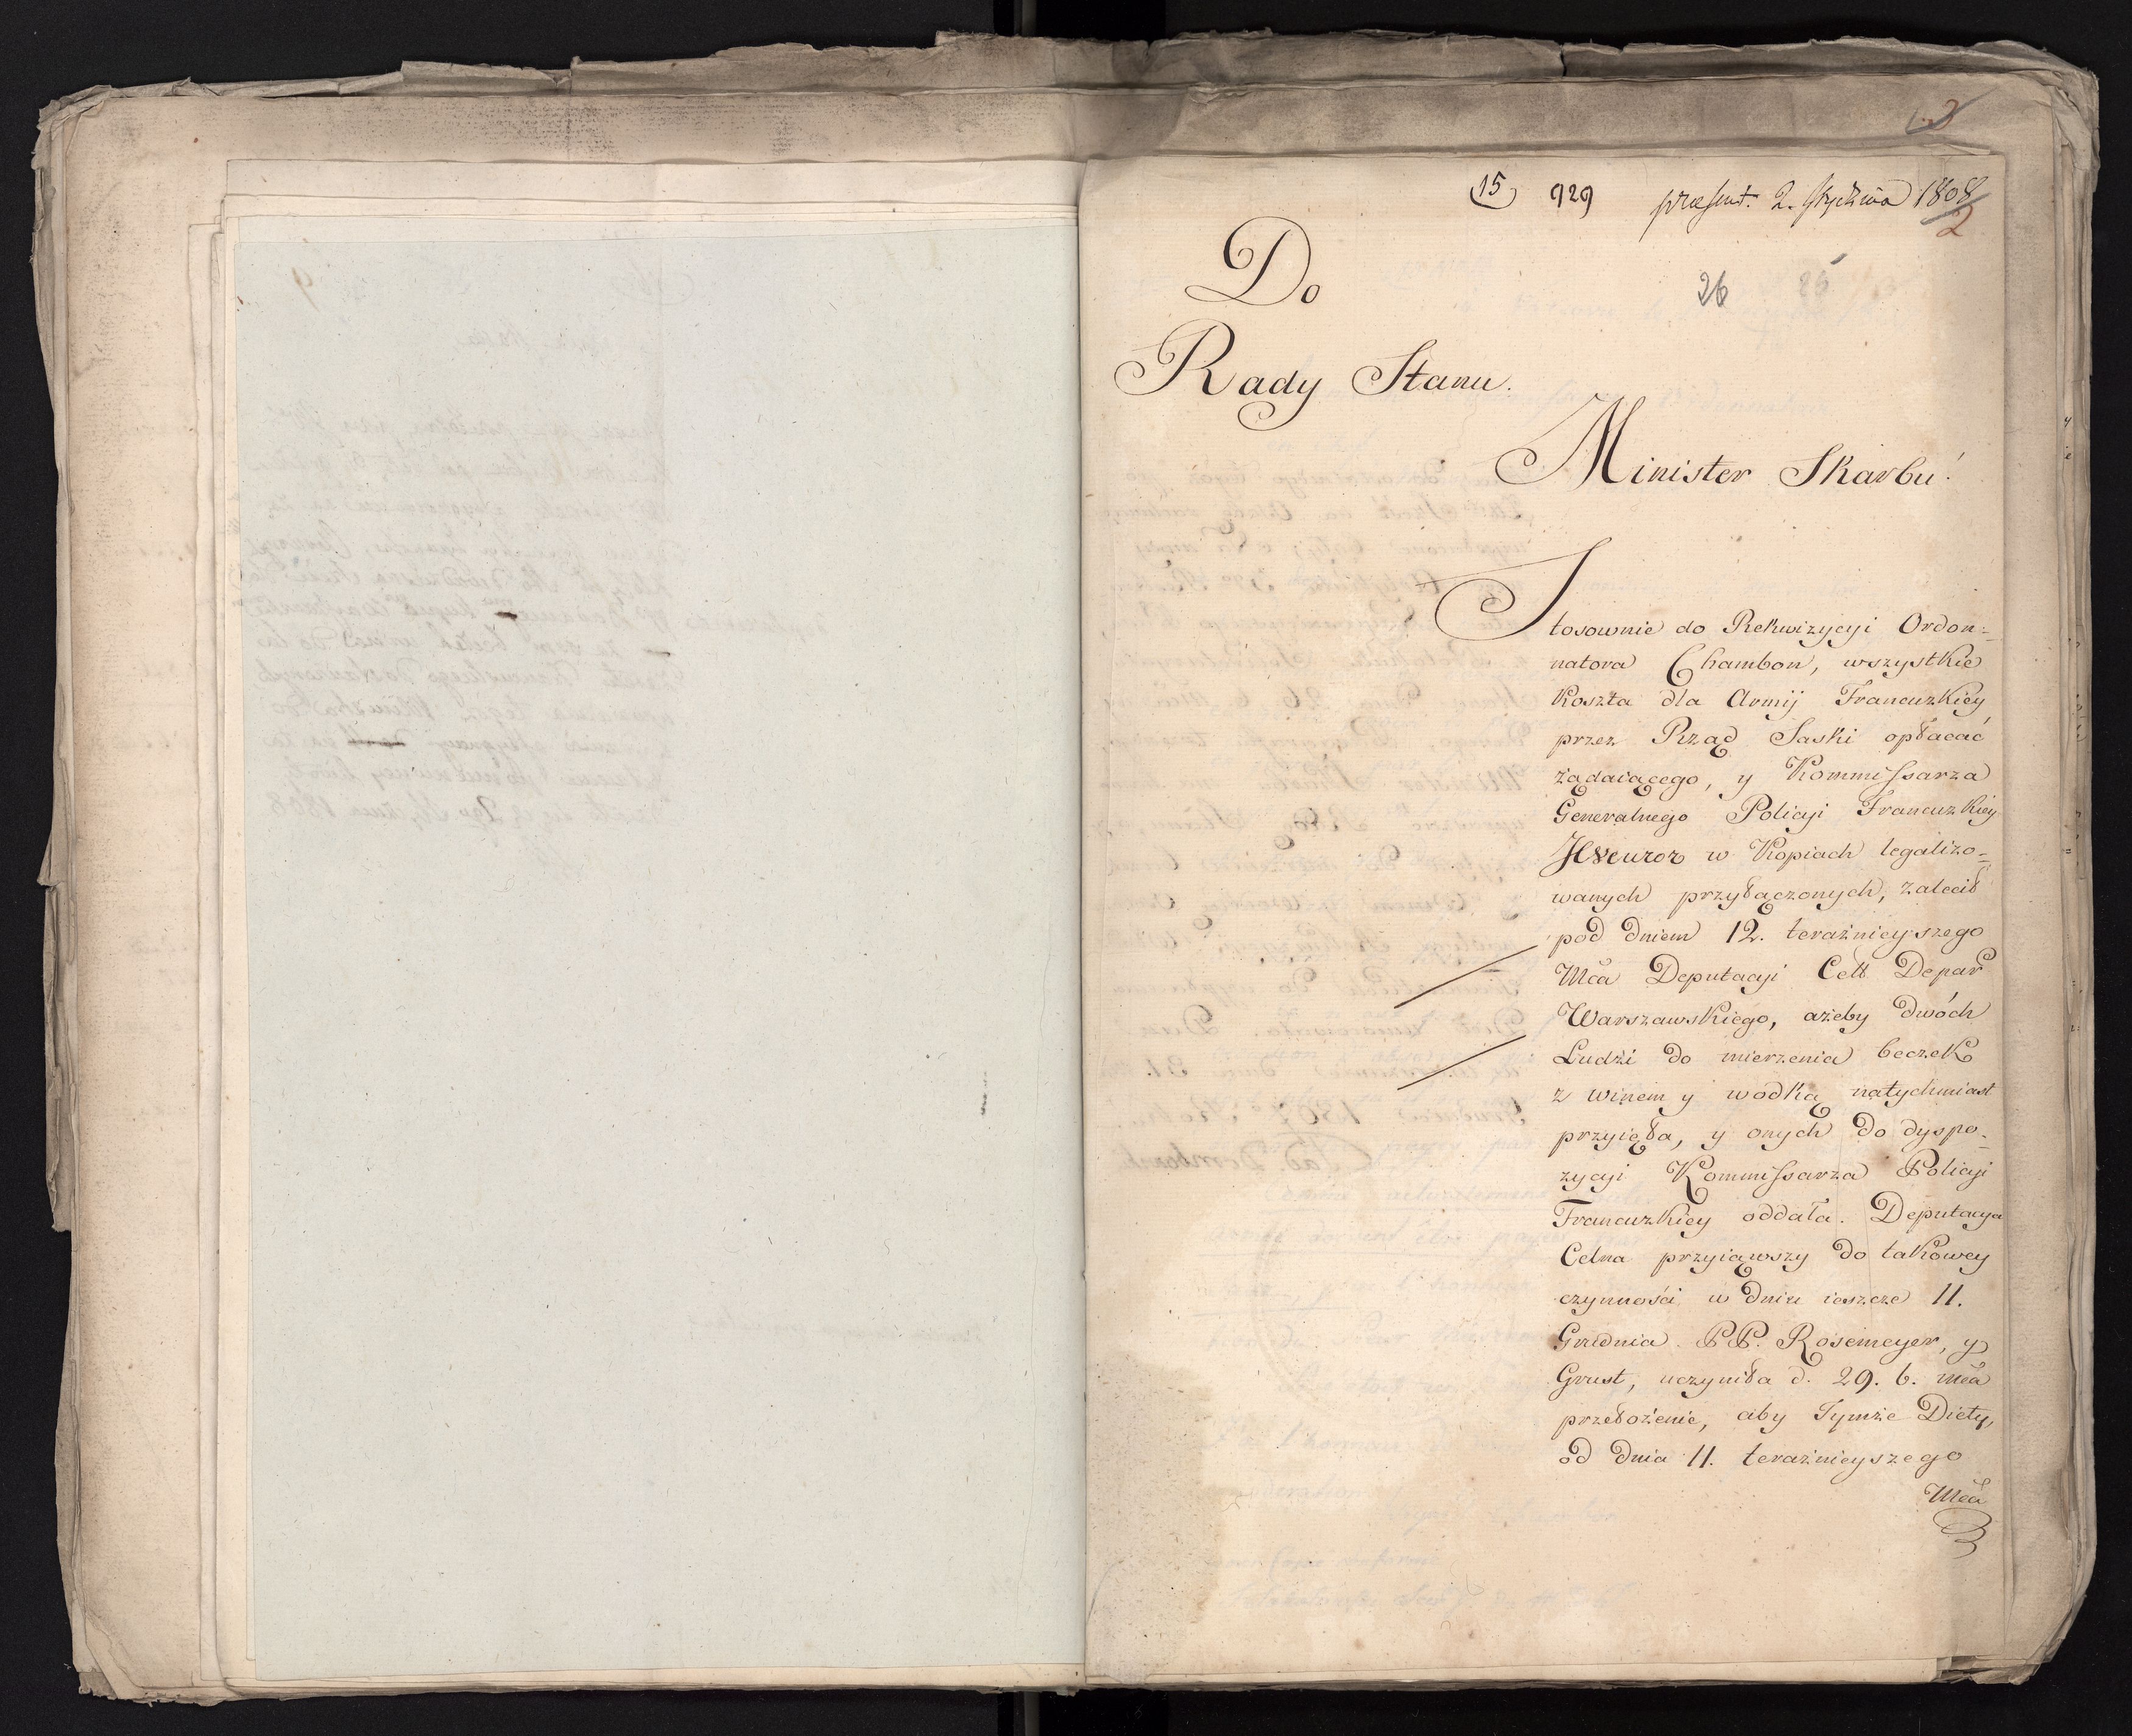 3
15 929 præsent. 2. Stycznia 1808
2
26 25
Do
Rady Stanu.
Minister Skarbu!
Stosownie do Rekwizycyi Ordon=
natora Chambon, wszystkie
Koszta dla Armij Francuzkiey
przez Rząd Saski opłacać
żądaiącego, y Kommissarza
Generalnego Policyi Francuzkiey
w Kopiach legalizo=
wanych przyłączonych, zalecił
pod dniem 12. teraźnieyszego
Mca Deputacyi Cell Depar
Warszawskiego, ażeby dwóch
Ludzi do mierzenia beczek
z winem y wodką natychmiast
przyięła, y onych do dyspo=
zycyi Kommissarza Policyi
Francuzkiey oddała. Deputacya
Celna przyiąwszy do takowey
czynności w dniu ieszcze 11.
Grudnia PP. Rosemeyer, y
Grust, uczyniła d. 29. b. mca
przełożenie, aby Tymże Diety,
od dnia 11. teraźnieyszego
Mca